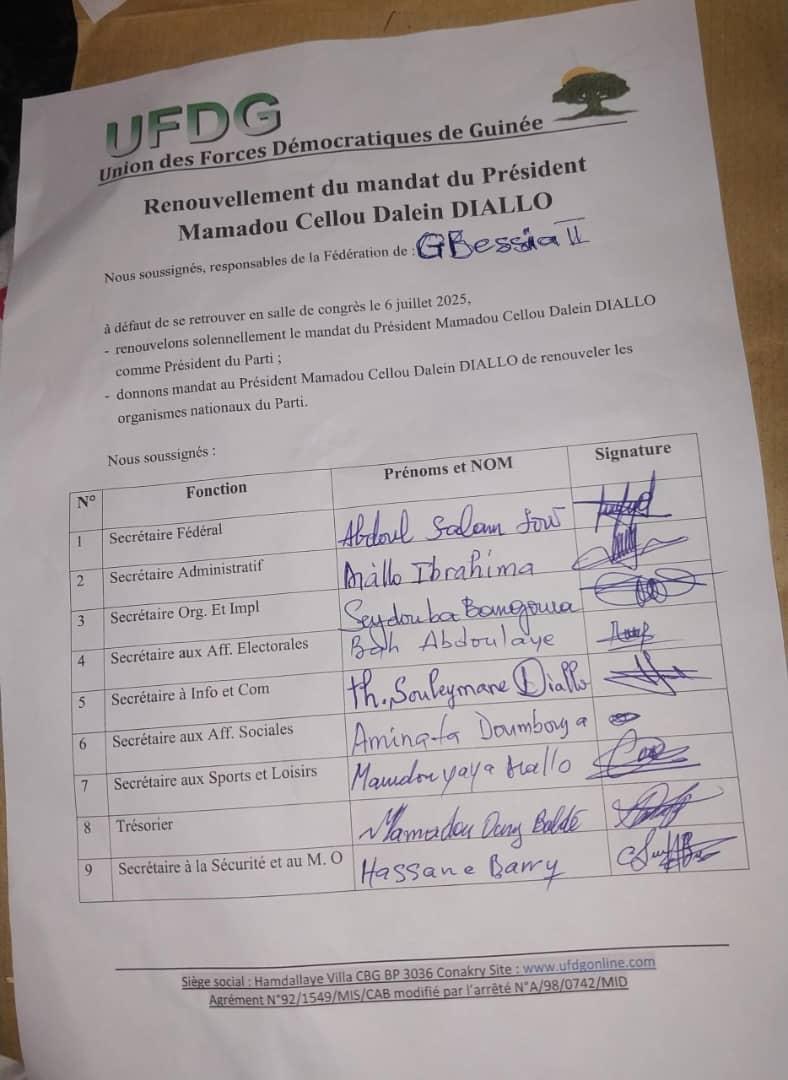 UFDG
Union des Forces Démocratiques de Guinée
Renouvellement du mandat du Président
Mamadou Cellou Dalein DIALLO
Nous soussignés, responsables de la Fédération de : GBessia II
à défaut de se retrouver en salle de congrès le 6 juillet 2025,
- renouvelons solennellement le mandat du Président Mamadou Cellou Dalein DIALLO
comme Président du Parti ;
- donnons mandat au Président Mamadou Cellou Dalein DIALLO de renouveler les
organismes nationaux du Parti.
Nous soussignés :
N° Fonction Prénoms et NOM Signature
1 Secrétaire Fédéral Abdoul Salam Sow
2 Secrétaire Administratif Diallo Ibrahima
3 Secrétaire Org. Et Impl Seydouba Bangoura
4 Secrétaire aux Aff. Electorales Bah Abdoulaye
5 Secrétaire à Info et Com th. Souleymane Diallo
6 Secrétaire aux Aff. Sociales Aminata Doumbouya
7 Secrétaire aux Sports et Loisirs Mamdou yaya Diallo
8 Trésorier Mamadou Oury Baldé
9 Secrétaire à la Sécurité et au M. O Hassane Barry
Siège social : Hamdallaye Villa CBG BP 3036 Conakry Site : www.ufdgonline.com
Agrément N°92/1549/MIS/CAB modifié par l'arrêté N°A/98/0742/MID